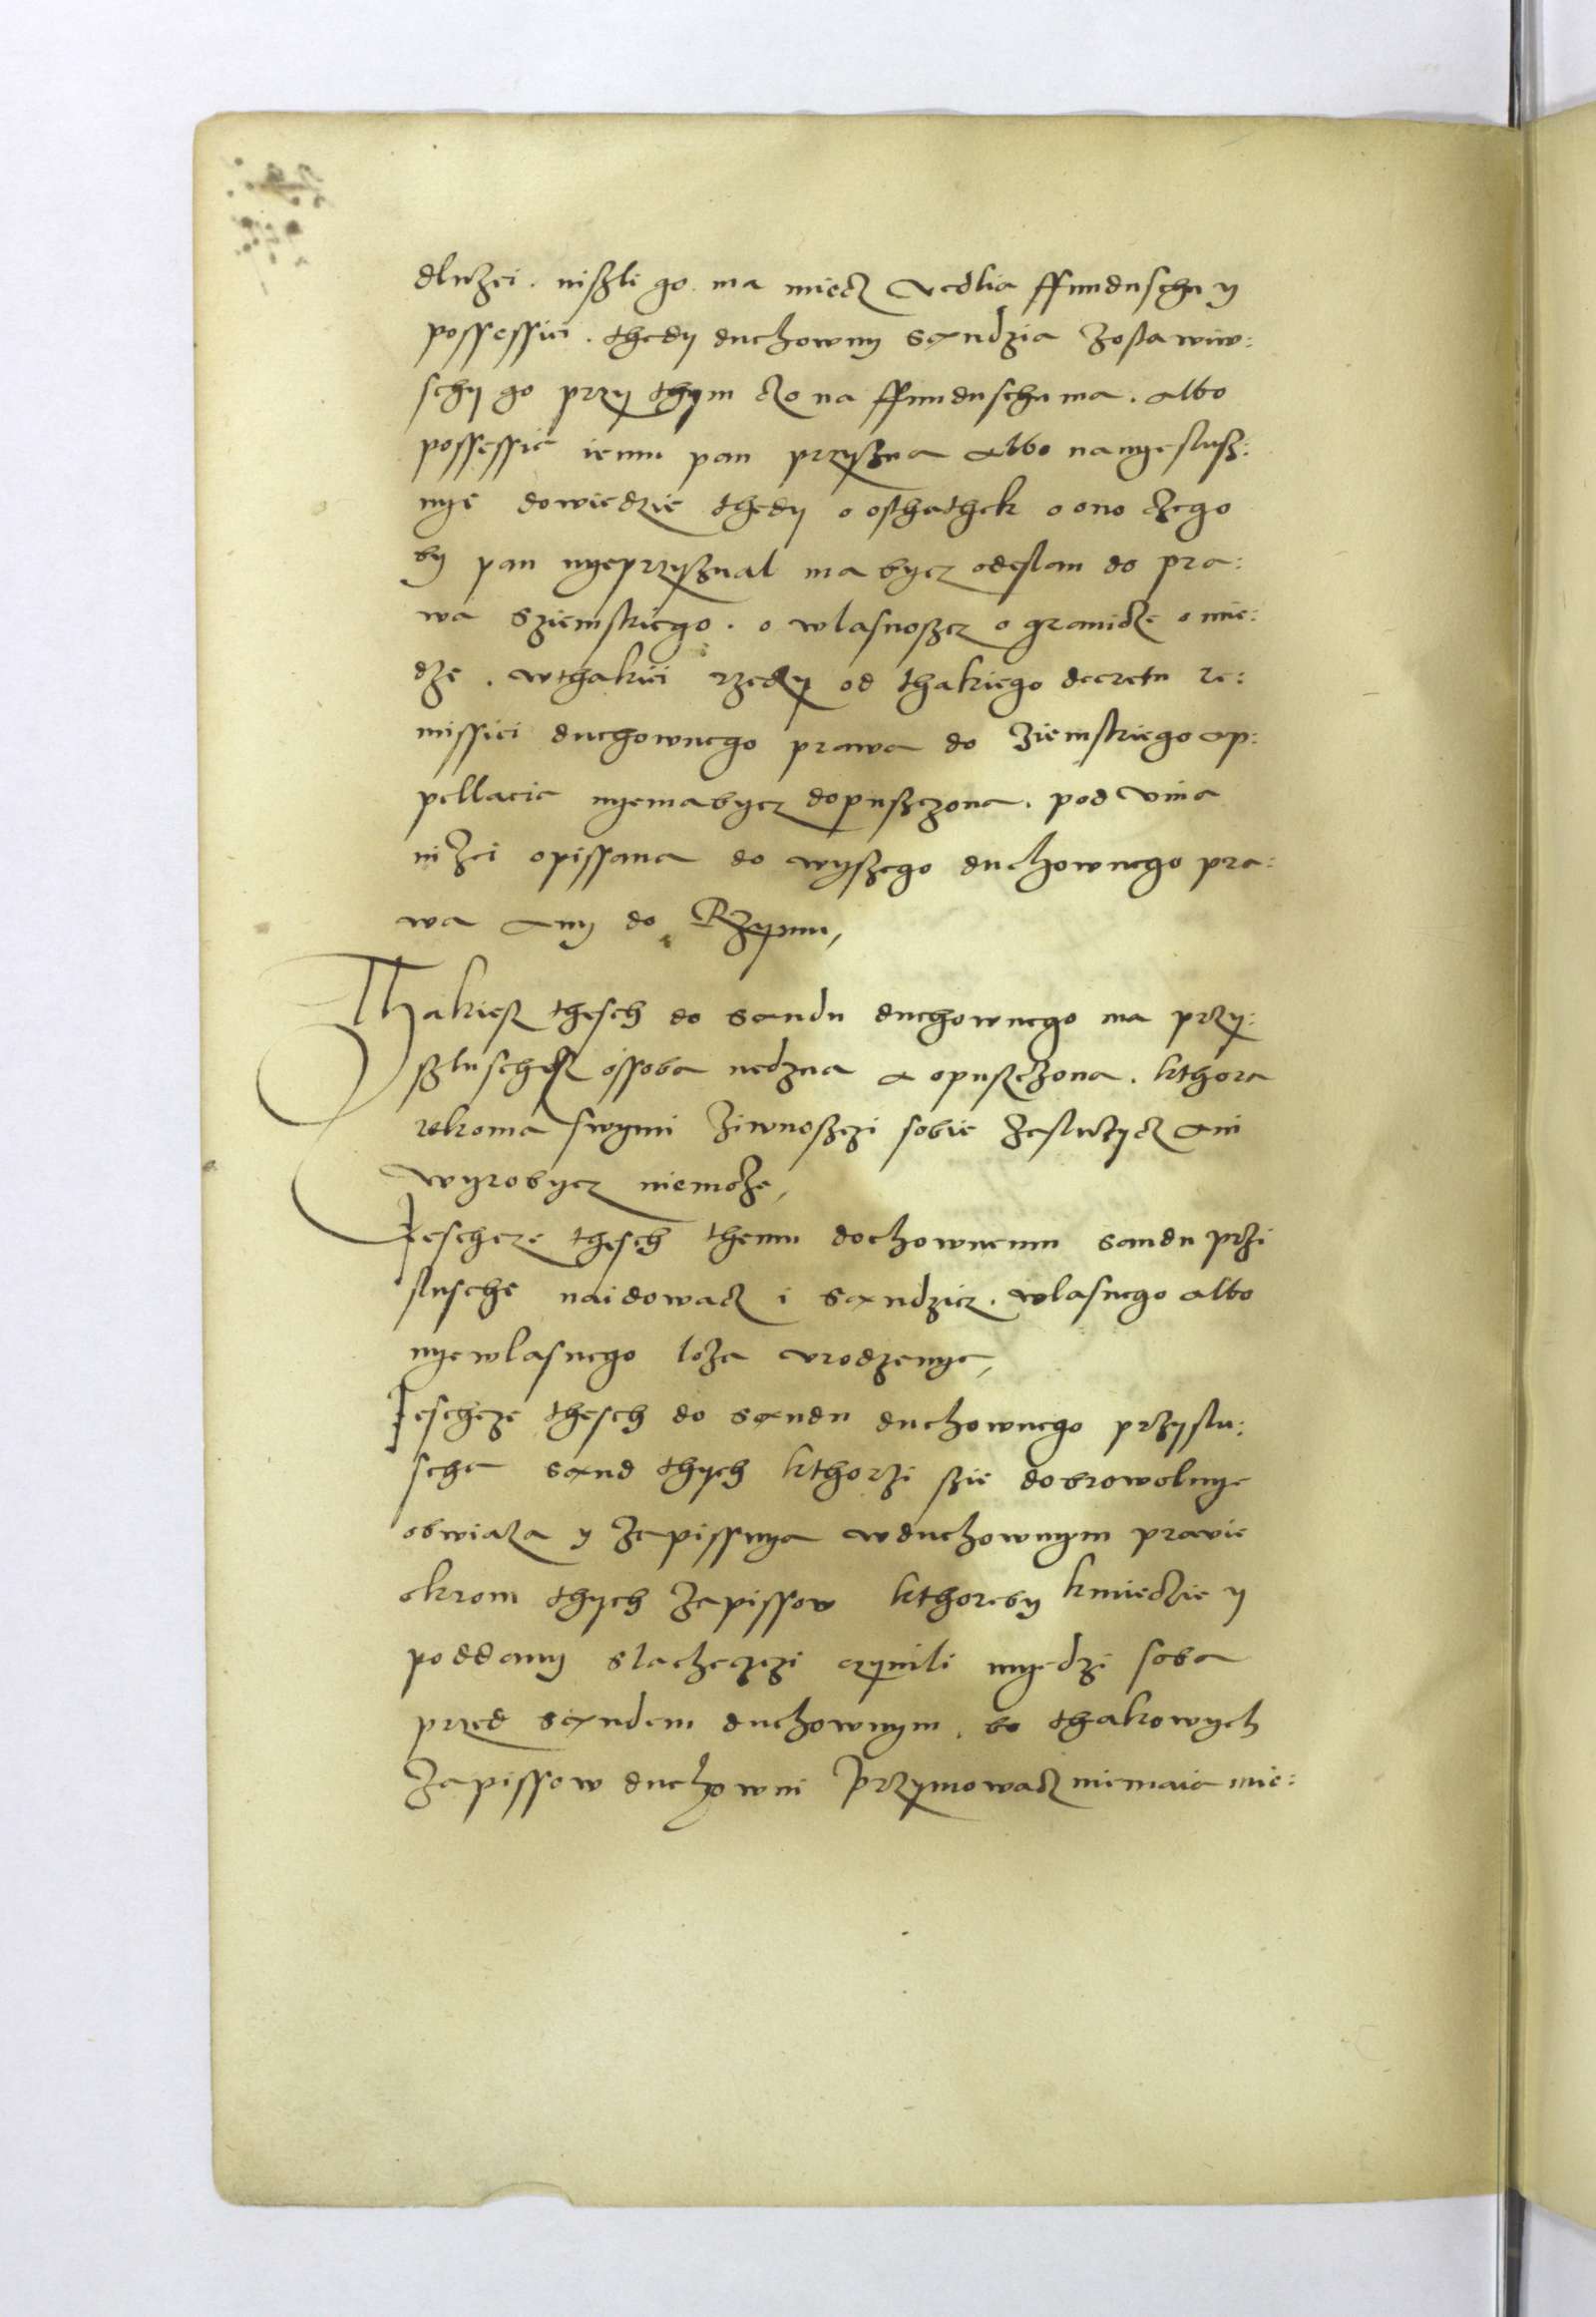 dluzei . niszli go ma miecz vedlia ffunduschu y
possessiei . thedy duchowny sandzia zostawiw:
schy go przy thym czo na ffunduschu ma . albo
possessie iemu pan przyszna albo nan yesłusz:
nye dowiedzie thedy o osthathek o ono czego
by pan nyeprzysznal ma bycz odeslan do pra:
wa sziemskiego . o wlasnoszcz o granicze o mie:
dze . wthakiei rzeczy od thakiego decretu re:
missiei duchownego prawa do ziemskiego ap:
pellacia nyema bycz dopuszczona . pod vina
nizei opissana do wyszego duchownego pra:
wa any do Rzymu,
Thakiesz thesch do sandu duchownego ma przy:
szluschecz ossoba nedzna a opuszczona . kthora
rekoma swymi ziwnoszczi sobie zasluzycz ani
wyrobycz niemoze,
Iescheze thesch themu dochownemu sandu przi
slusche naidowacz i sandzicz . wlasnego albo
nyewlasnego loza vrodzenye,
Iescheze thesch do sandu duchownego przyslu:
scha sand thych kthorzi szie dobrowolnye
obwiaza y zapissuya wduchownym pravie
okrom thych zapissow kthoreby kmieczie y
poddany slacheczczi czynili myedzi soba
przed sandem duchownym . bo thakowych
zapissow duchowni przymowacz niemaia mie: